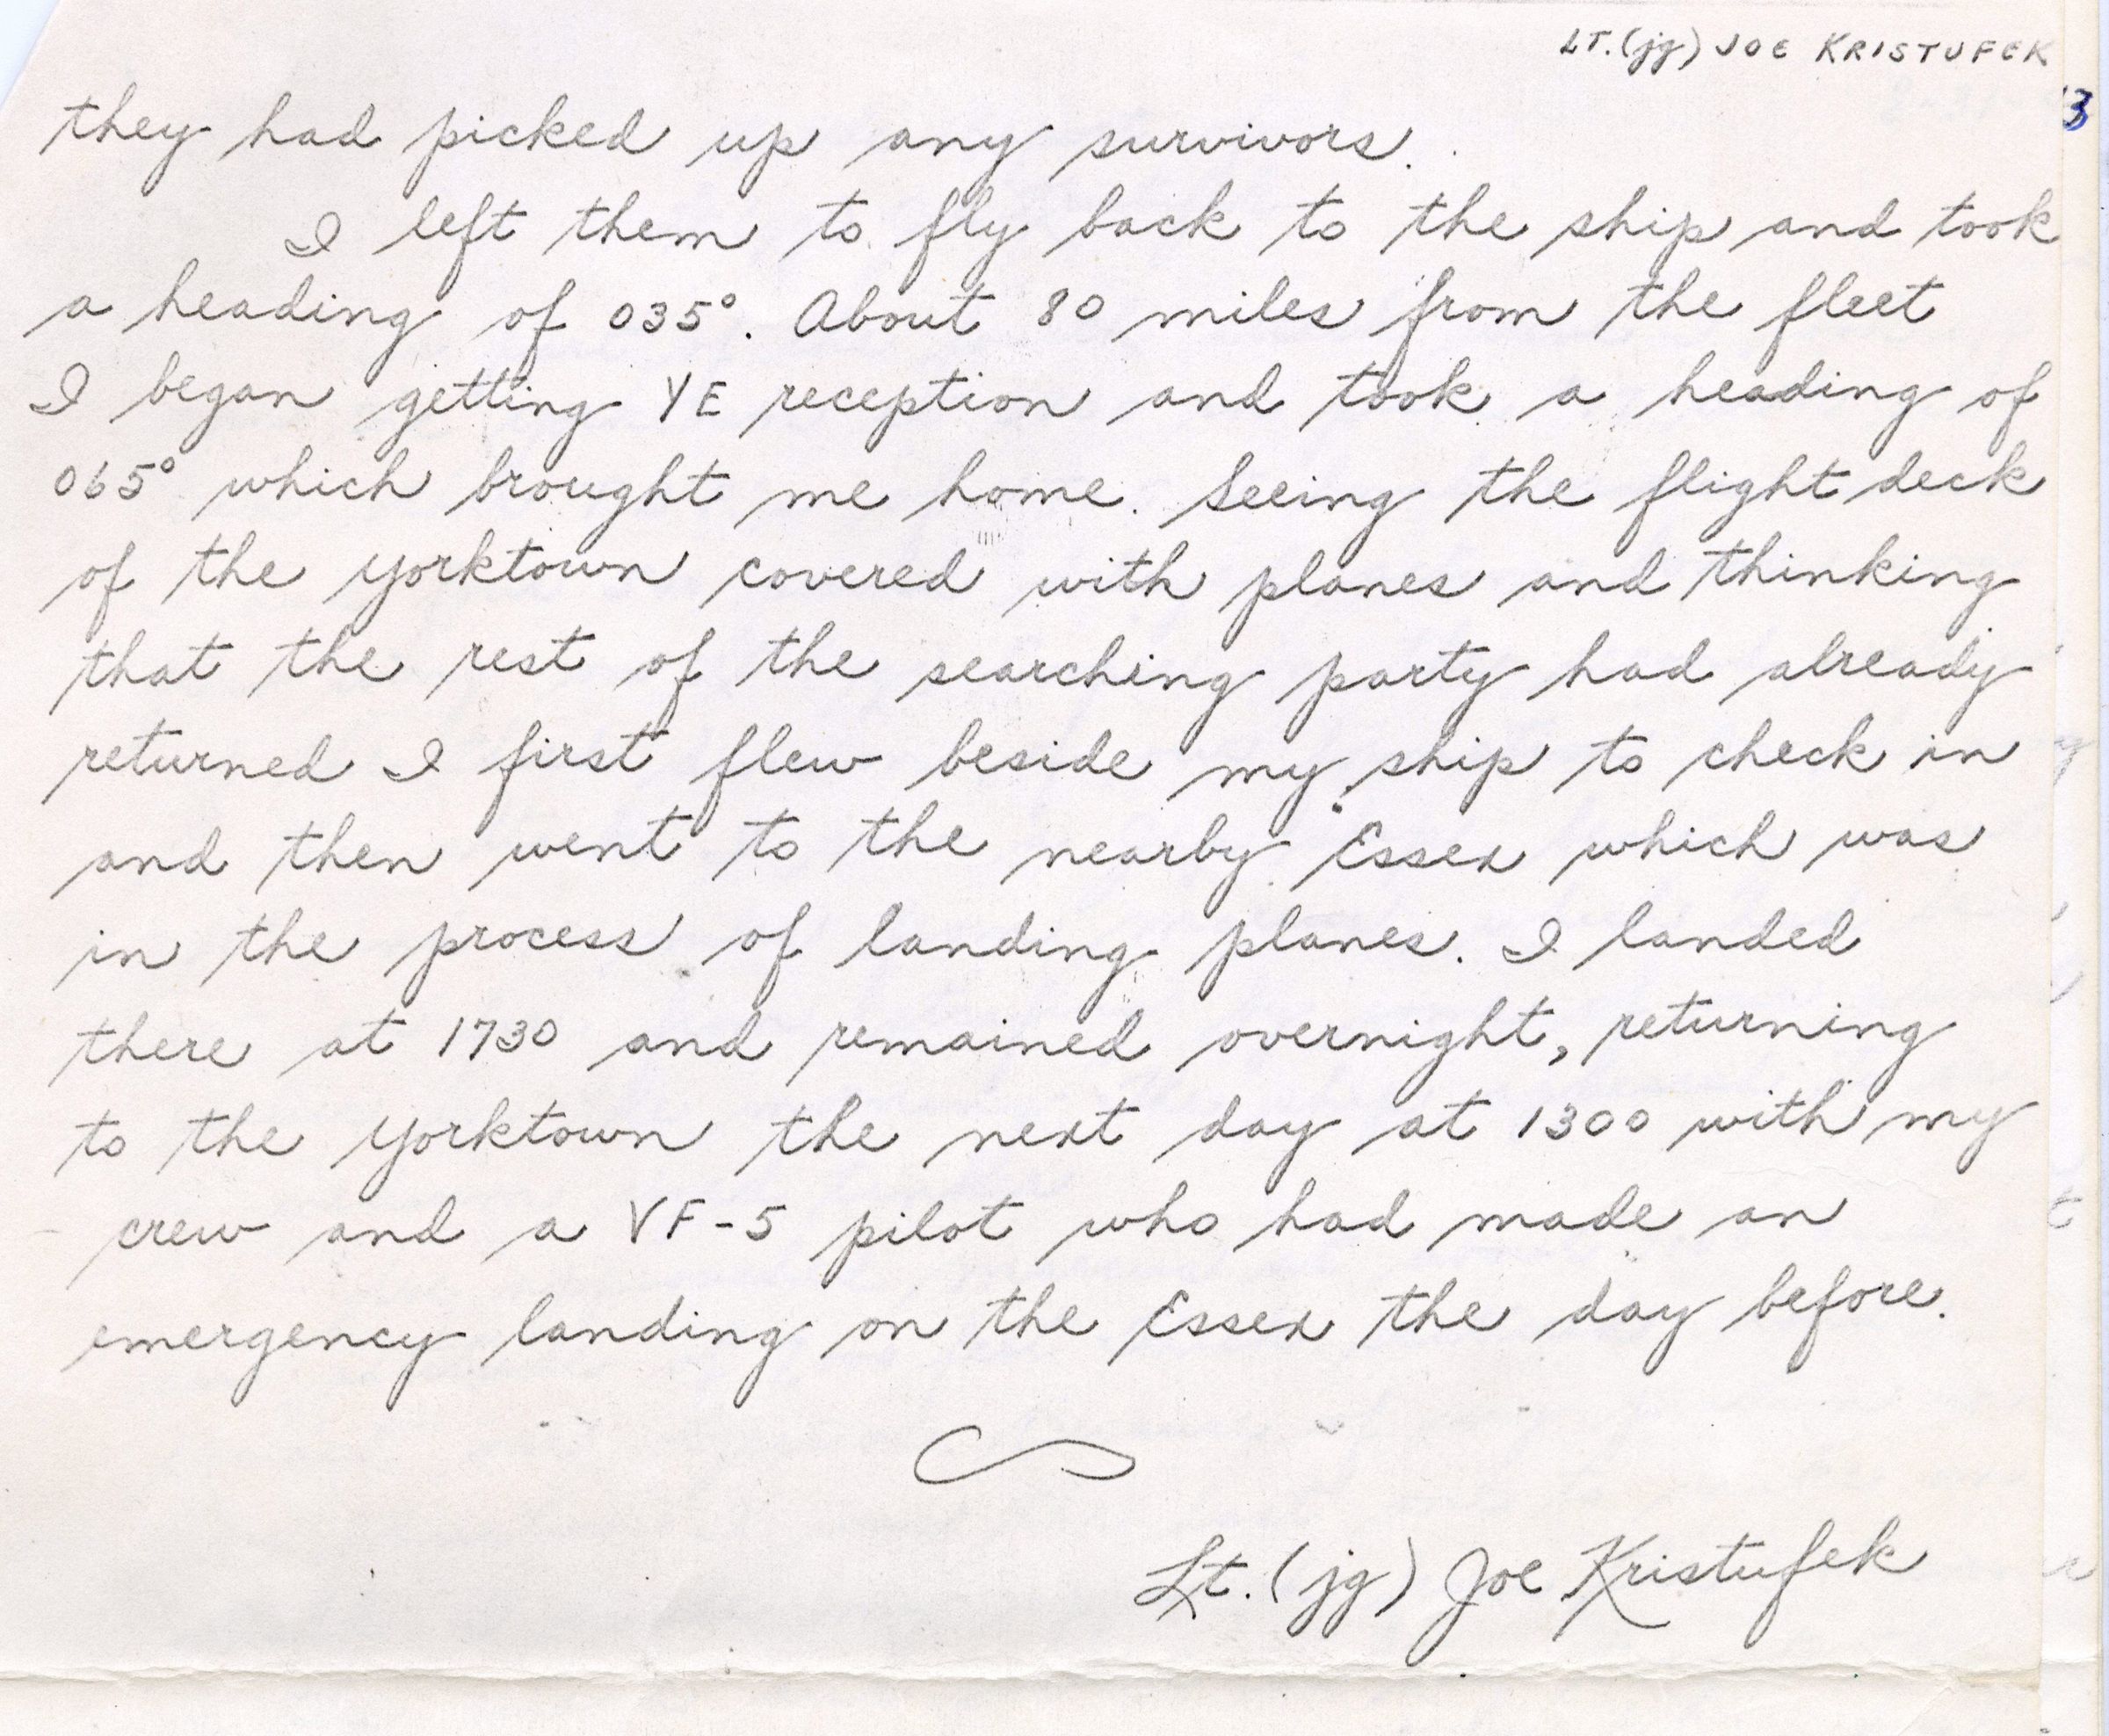 LT. (jg) JOE KRISTUFEK
3
they had picked up any survivors.
I left them to fly back to the ship and took
a heading of 035°. About 80 miles from the fleet
I began getting YE reception and took a heading of
065° which brought me home. Seeing the flight deck
of the Yorktown covered with planes and thinking
that the rest of the searching party had already
returned I first flew beside my ship to check in
and then went to the nearby Essex which was
in the process of landing planes. I landed
there at 1730 and remained overnight, returning
to the Yorktown the next day at 1300 with my
crew and a VF-5 pilot who had made an
emergency landing on the Essex the day before.
Lt. (jg) Joe Kristufek